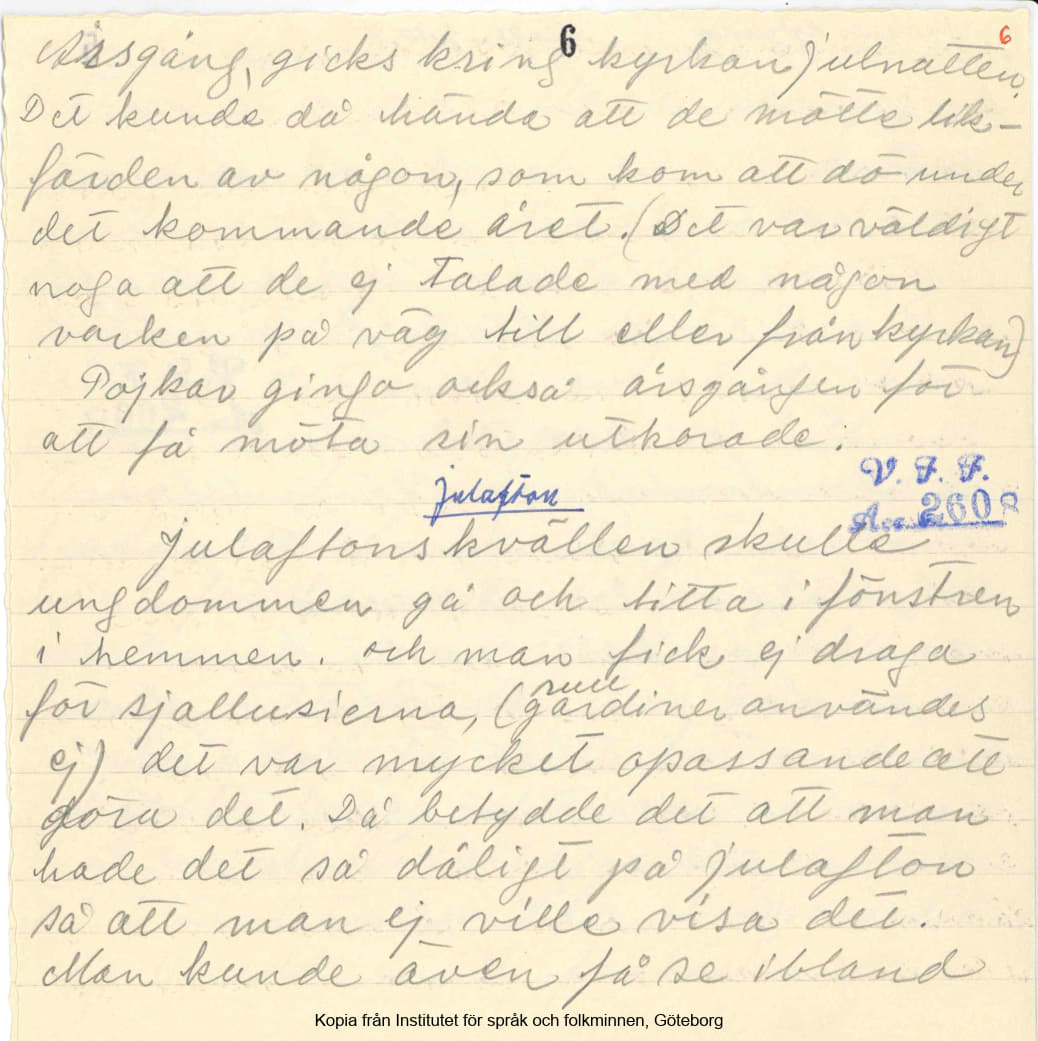 6 6
Årsgång, gicks kring kyrkan julnatten.
Det kunde då hända att de mötte lik-
färden av någon, som kom att dö under
det kommande året. (Det var väldigt
noga att de ej talade med någon
varken på väg till eller från kyrkan)
Pojkar gingo också årsgången för
att få möta sin utkorade.
V. F. F.
julafton
Acc. 2608
Julaftonskvällen skulle
ungdommen gå och titta i fönstren
i hemmen. och man fick ej draga
för sjallusierna, (rullgardiner användes
ej) det var mycket opassande att
göra det. Då betydde det att man
hade det så dåligt på julafton
så att man ej ville visa det.
Man kunde även få se ibland
Kopia från Institutet för språk och folkminnen, Göteborg